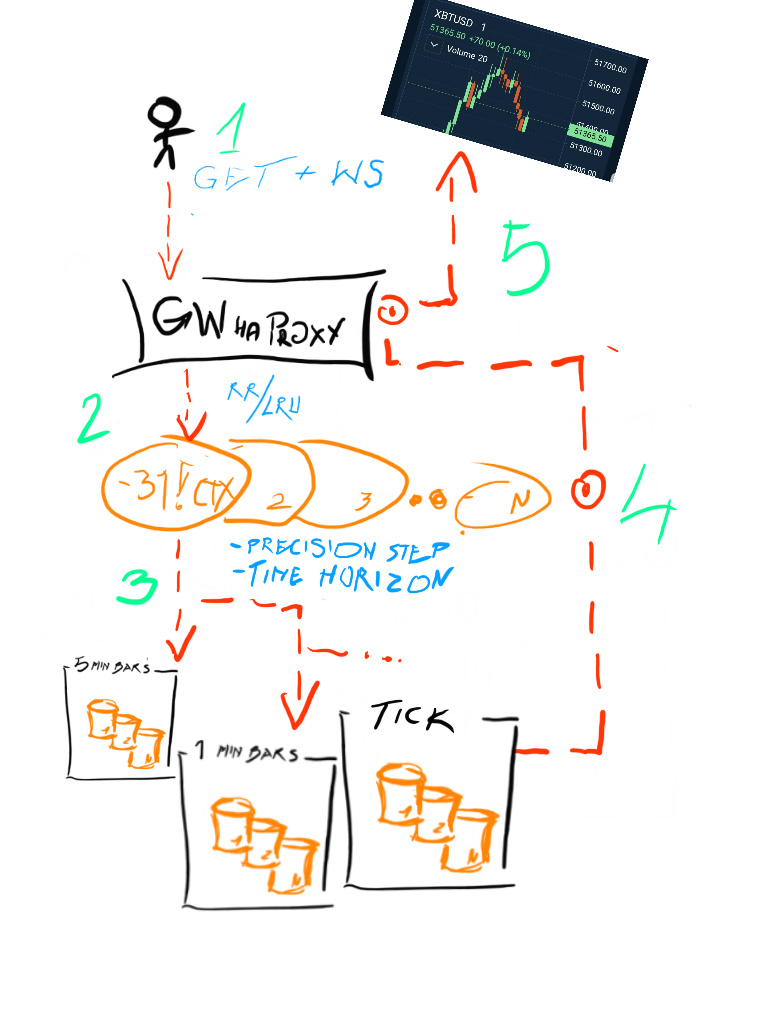 XBTUSD 1
51365.50 +70.00 (+0.14%)
Volume 20
51700.00
51600.00
51500.00
51365.50
51300.00
51200.00
1
GET + WS
5
GW HA PROXY
2
RR/LRU
CTX 2 3 N
4
- PRECISION STEP
- TIME HORIZON
3
5 MIN BARS
1 2 N
TICK
1 2 N
1 MIN BARS
1 2 N